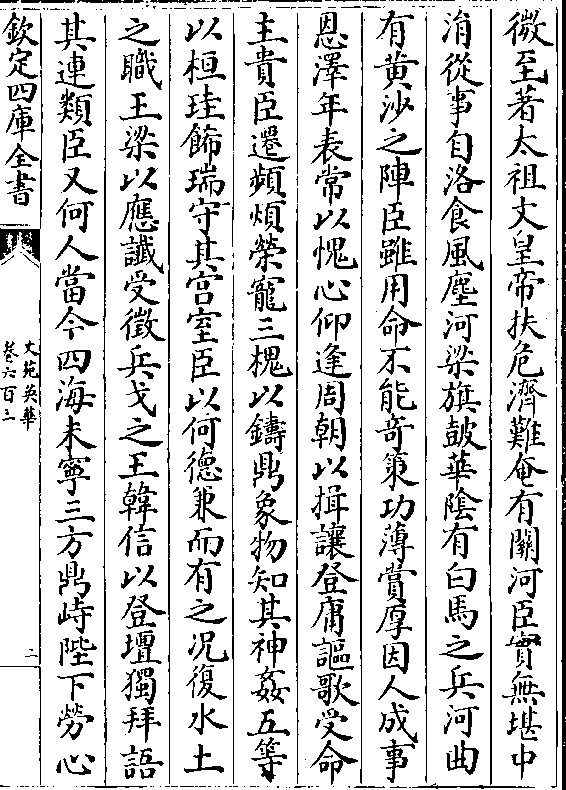 微至著太祖文皇帝扶危濟難奄有關河臣實無堪中
涓從事自洛食風塵河梁旗鼓華陰有白馬之兵河曲
有黄沙之陣臣雖用命不能竒策功薄賞厚因人成事
恩澤年表常以愧心仰逢周朝以揖讓登庸謳歌受命
主貴臣遷頻煩榮寵三槐以鑄鼎象物知其神姦五等
以桓珪飾瑞守其宫室臣以何德兼而有之况復水土
之職王梁以應讖受徵兵戈之王韓信以登壇獨拜語
其連類臣又何人當今四海未寧三方鼎峙陛下勞心
欽定四庫全書
文苑英華
卷六百三
二